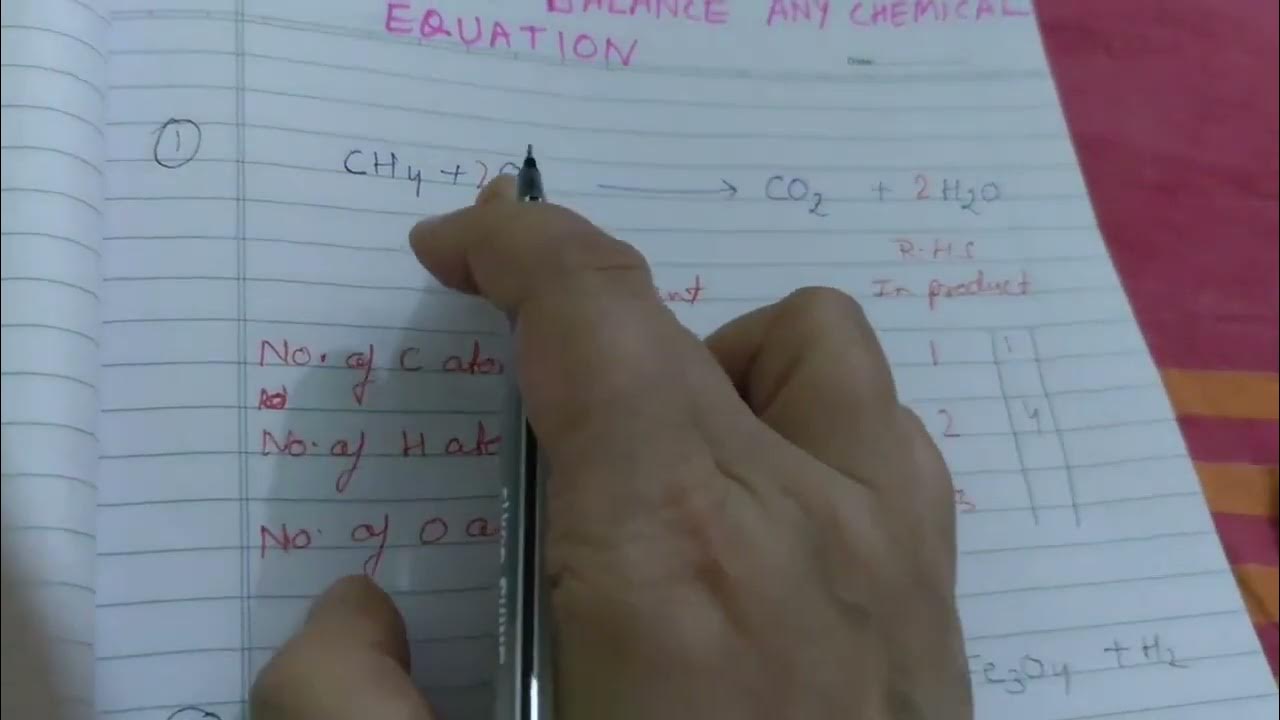 BALANCE ANY CHEMICAL
EQUATION
①
CH4 + 2 → CO2 + 2H2O
R.H.S
In product
No. of C 1 1
No. of H 2 4
No. of O 3
Fe3O4 + H2